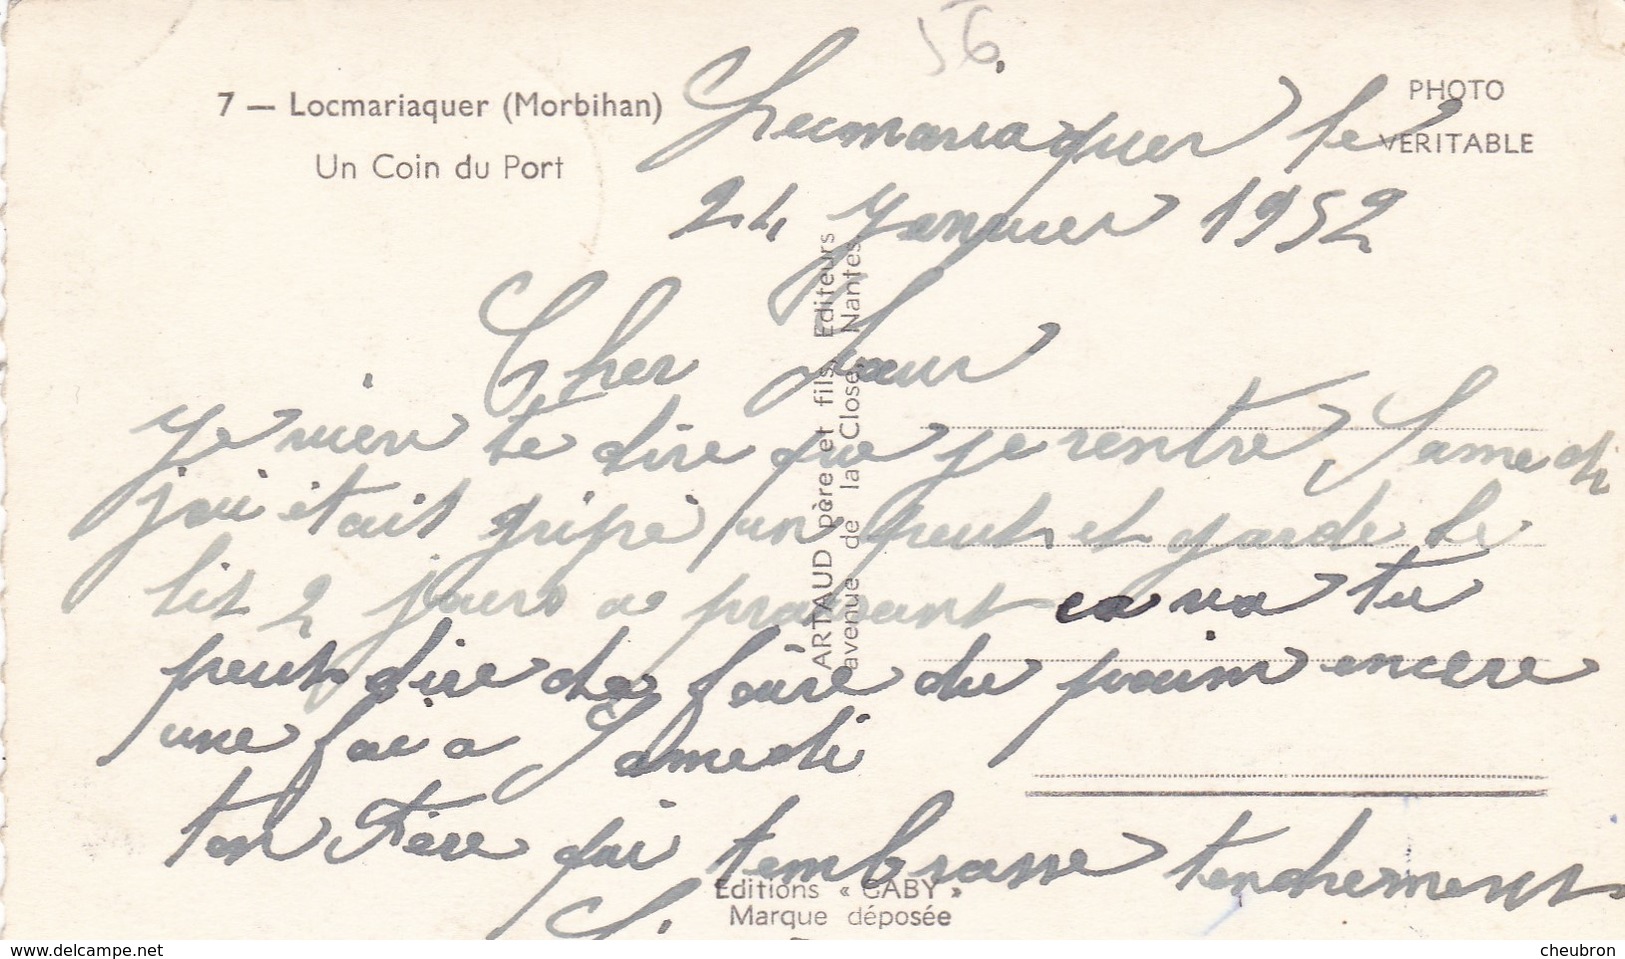 56
7 — Locmariaquer (Morbihan)
Un Coin du Port
PHOTO
VERITABLE
Locmariaquer le
24 Janvier 1952
Cher Sœur
Je vien te dire que je rentre Samedi
j'ai était gripé un peut et garde le
lit 2 jours a présant ca va tu
peut dire de faire du paim encore
une foi a Samedi
ton frère qui tembrasse tendrement
ARTAUD père et fils, Editeurs
avenue de la Close Nantes
Editions « GABY »
Marque déposée
www.delcampe.net
cheubron